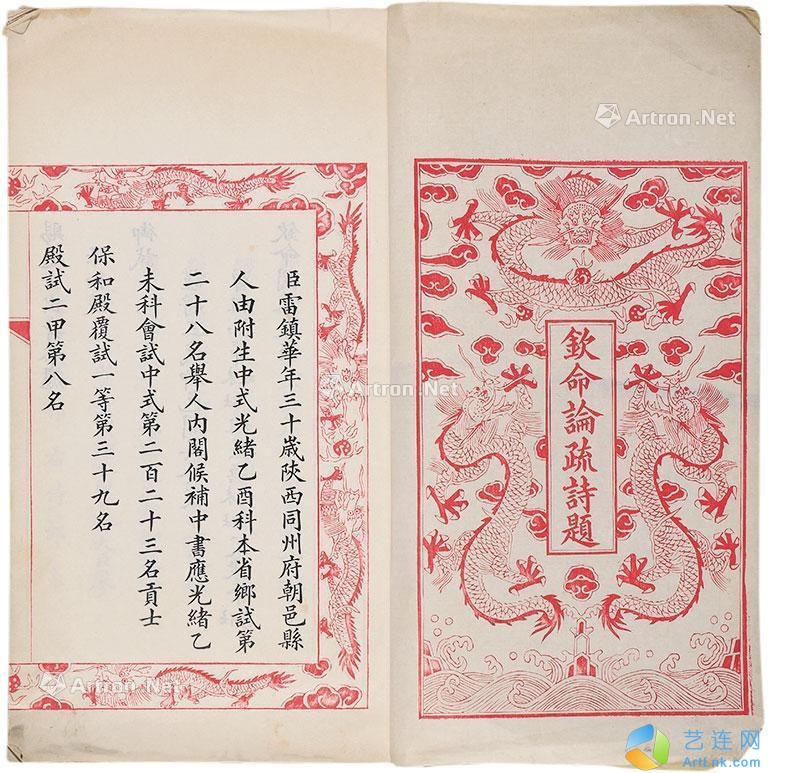 欽命論疏詩題
臣雷鎮華年三十歲陝西同州府朝邑縣
人由附生中式光緒乙酉科本省鄉試第
二十八名舉人內閣候補中書應光緒乙
未科會試中式第二百二十三名貢士
保和殿覆試一等第三十九名
殿試二甲第八名
Artron.Net
Artron.Net
Artron.Net
艺连网
ArtLnk.com